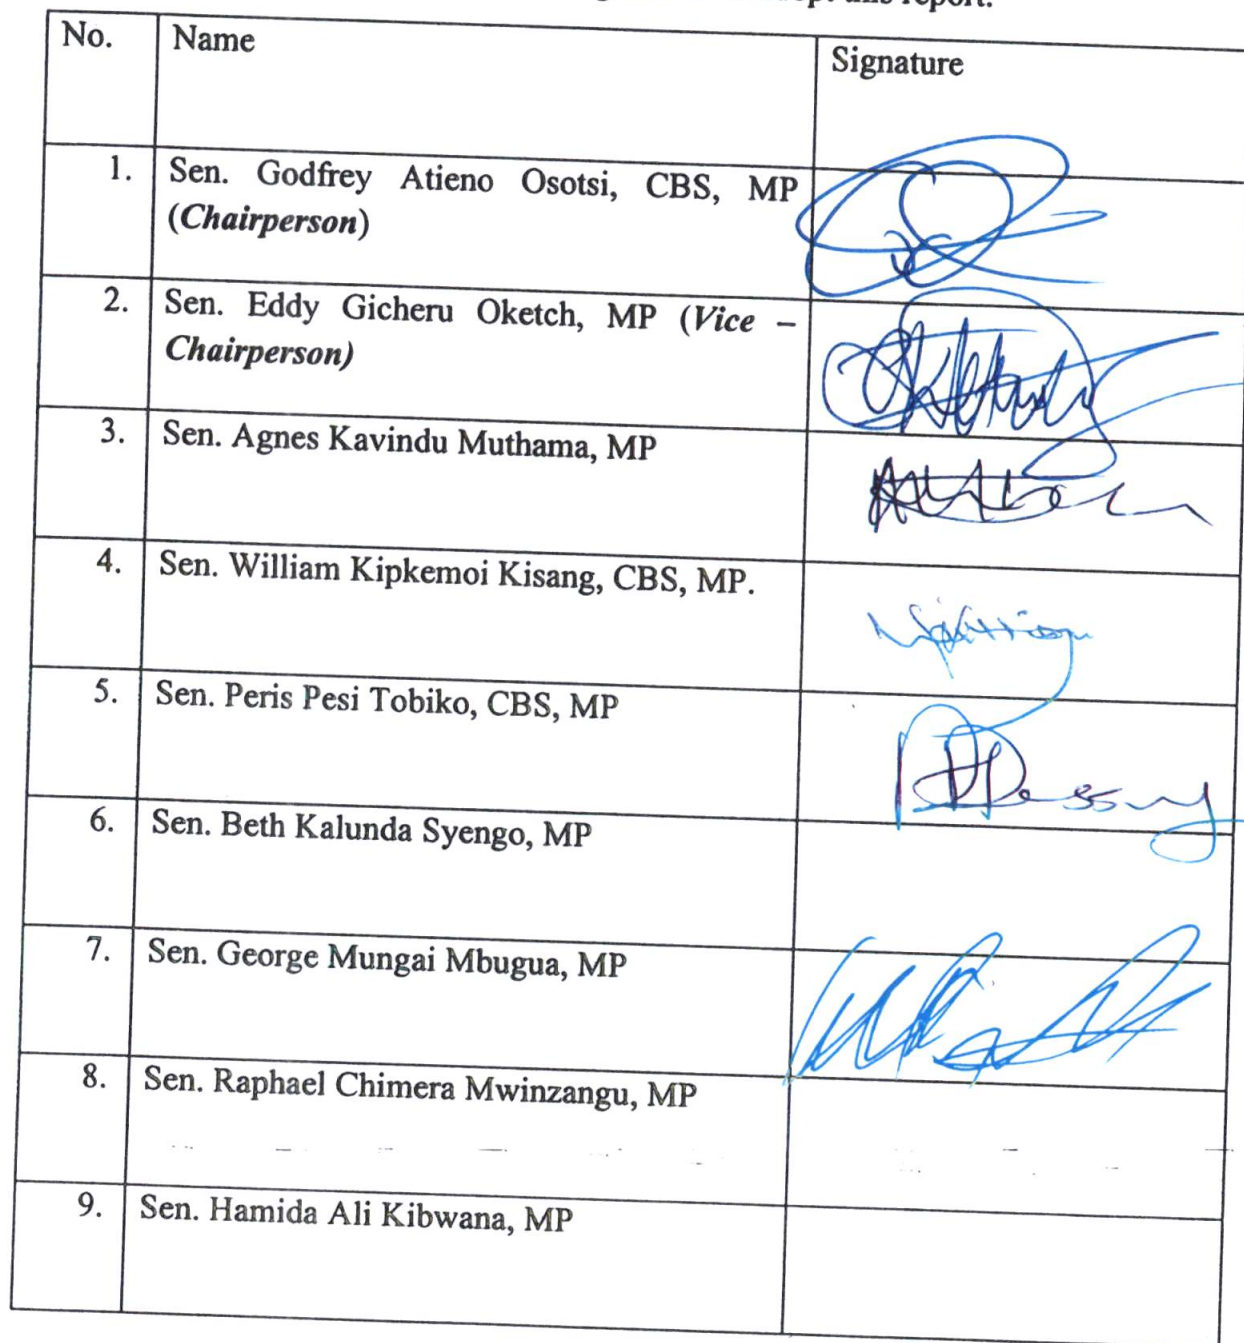 this report.
No. Name Signature
1. Sen. Godfrey Atieno Osotsi, CBS, MP
(Chairperson)
2. Sen. Eddy Gicheru Oketch, MP (Vice –
Chairperson)
3. Sen. Agnes Kavindu Muthama, MP
4. Sen. William Kipkemoi Kisang, CBS, MP.
5. Sen. Peris Pesi Tobiko, CBS, MP
6. Sen. Beth Kalunda Syengo, MP
7. Sen. George Mungai Mbugua, MP
8. Sen. Raphael Chimera Mwinzangu, MP
9. Sen. Hamida Ali Kibwana, MP